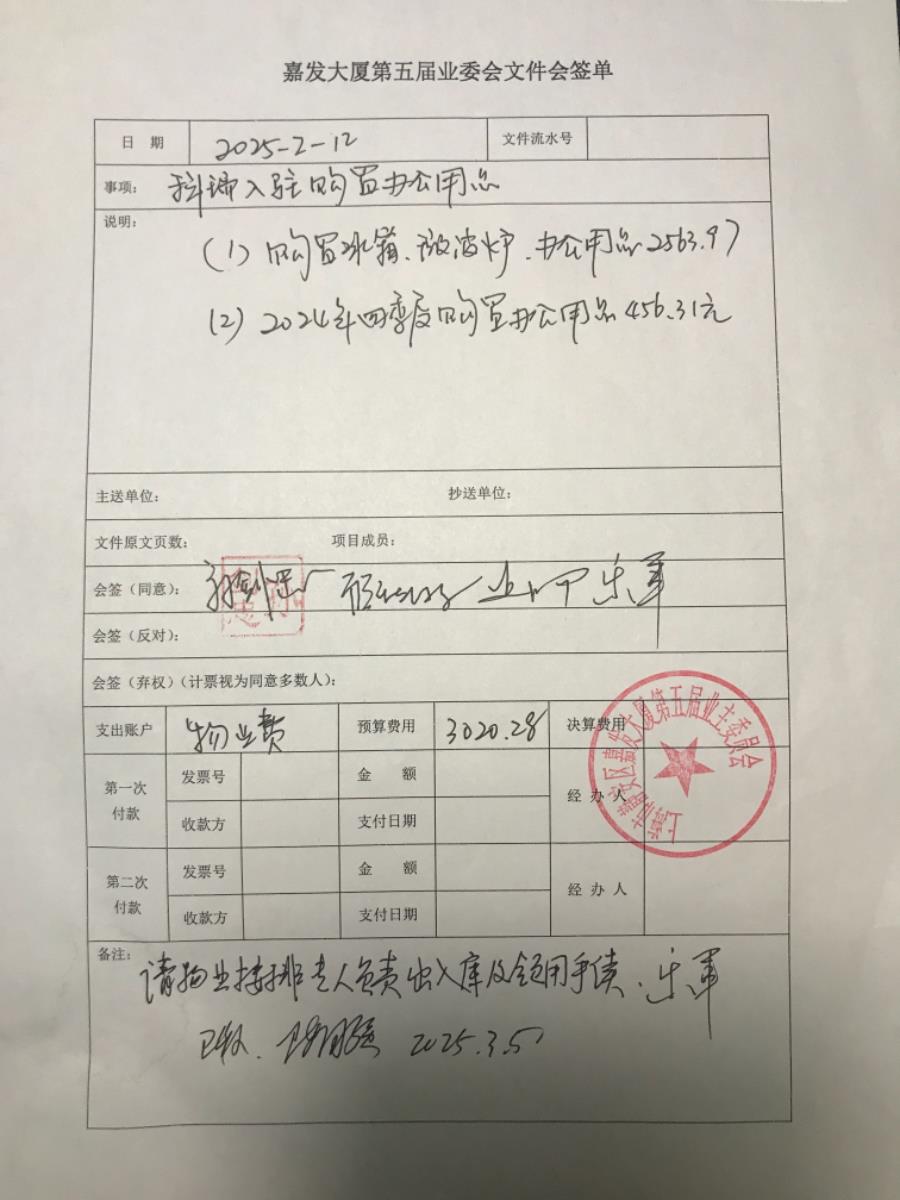 嘉发大厦第五届业委会文件会签单
日 期 2025-2-12 文件流水号
事项: 科瑞入驻购置办公用品
说明:
(1) 购置冰箱、微波炉、办公用品2563.97
(2) 2024年四季度购置办公用品456.31元
主送单位: 抄送单位:
文件原文页数: 项目成员:
会签(同意): 乐军
会签(反对):
会签(弃权)(计票视为同意多数人):
支出账户 物业费 预算费用 3020.28 决算费用
第一次付款 发票号 金 额 经 办 人
收款方 支付日期
第二次付款 发票号 金 额 经 办 人
收款方 支付日期
上海市静安区嘉发大厦第五届业主委员会
备注:
请物业安排专人负责出入库及领用手续、乐军
已收、 2025.3.5